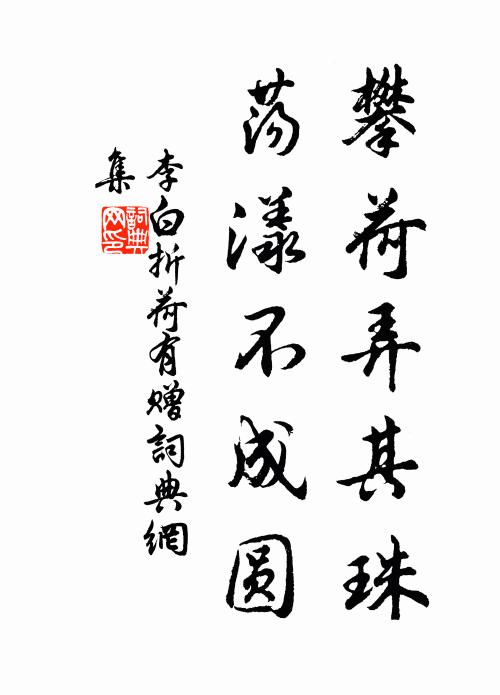 攀荷弄其珠
荡漾不成圆
李白折荷有赠詞典網
集
詞典网印